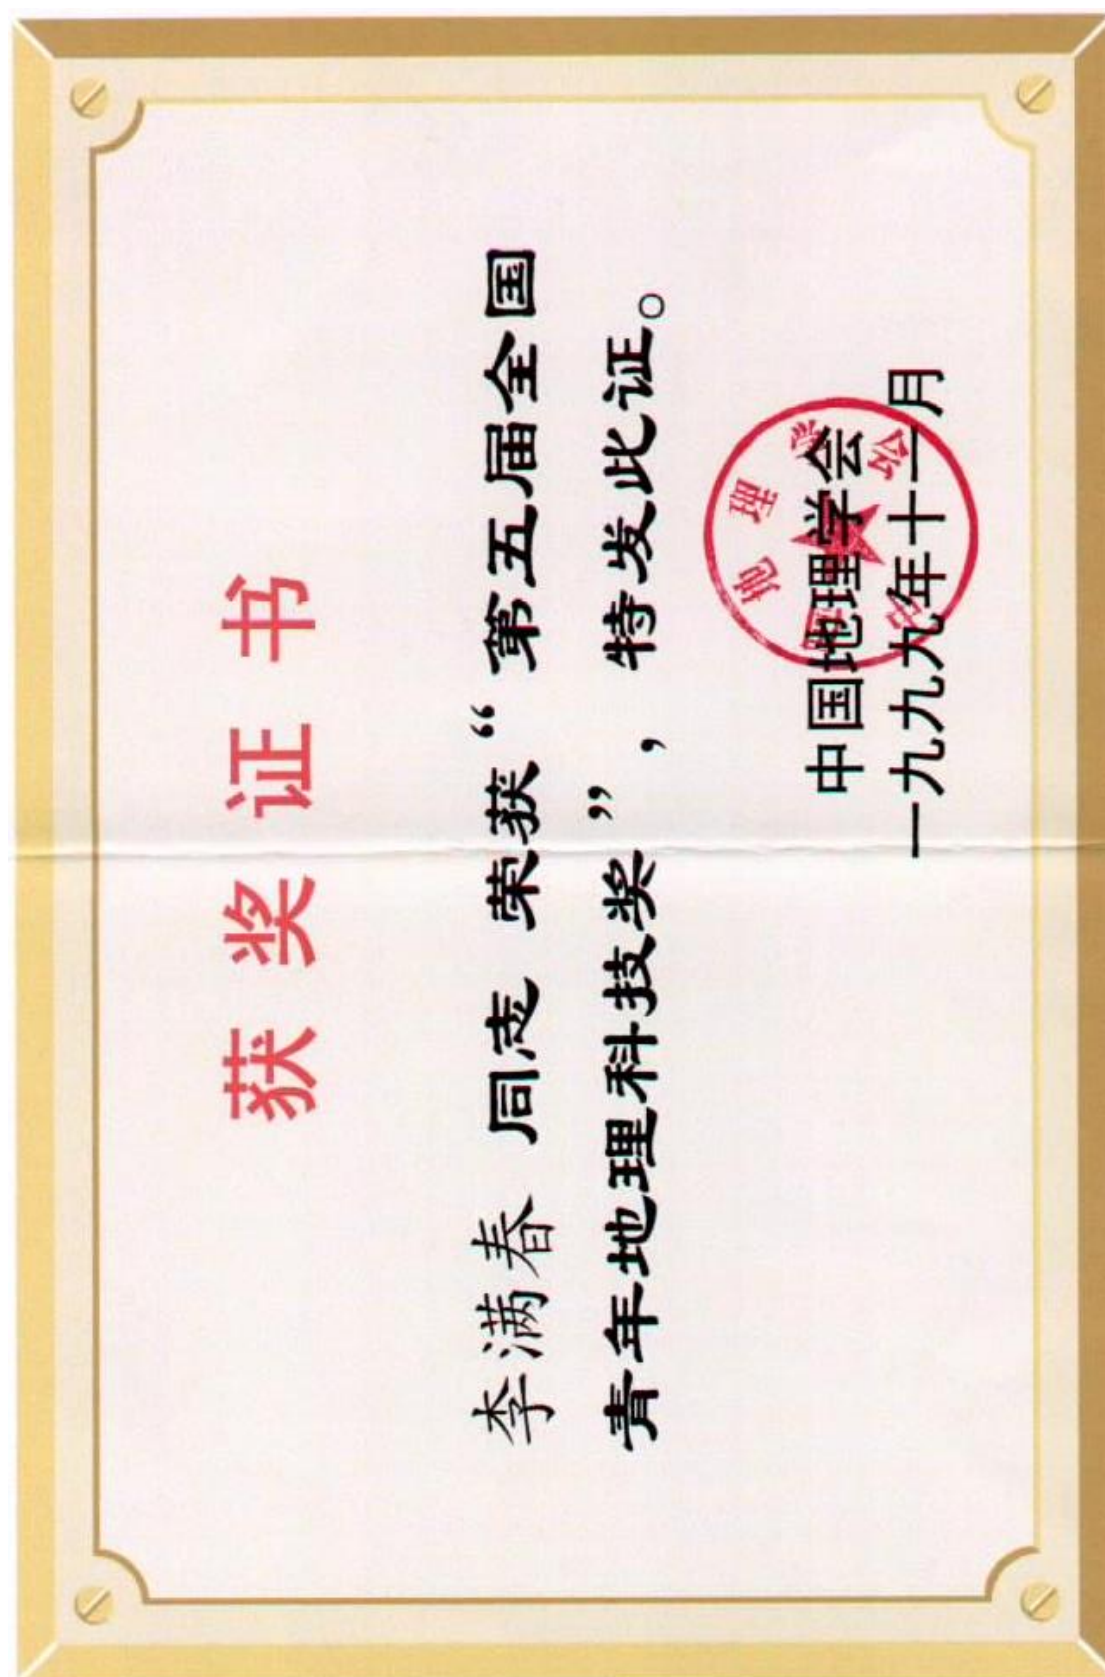 获奖证书
李满春 同志 荣获“第五届全国
青年地理科技奖”，特发此证。
中国地理学会
一九九九年十一月
中国地理学会